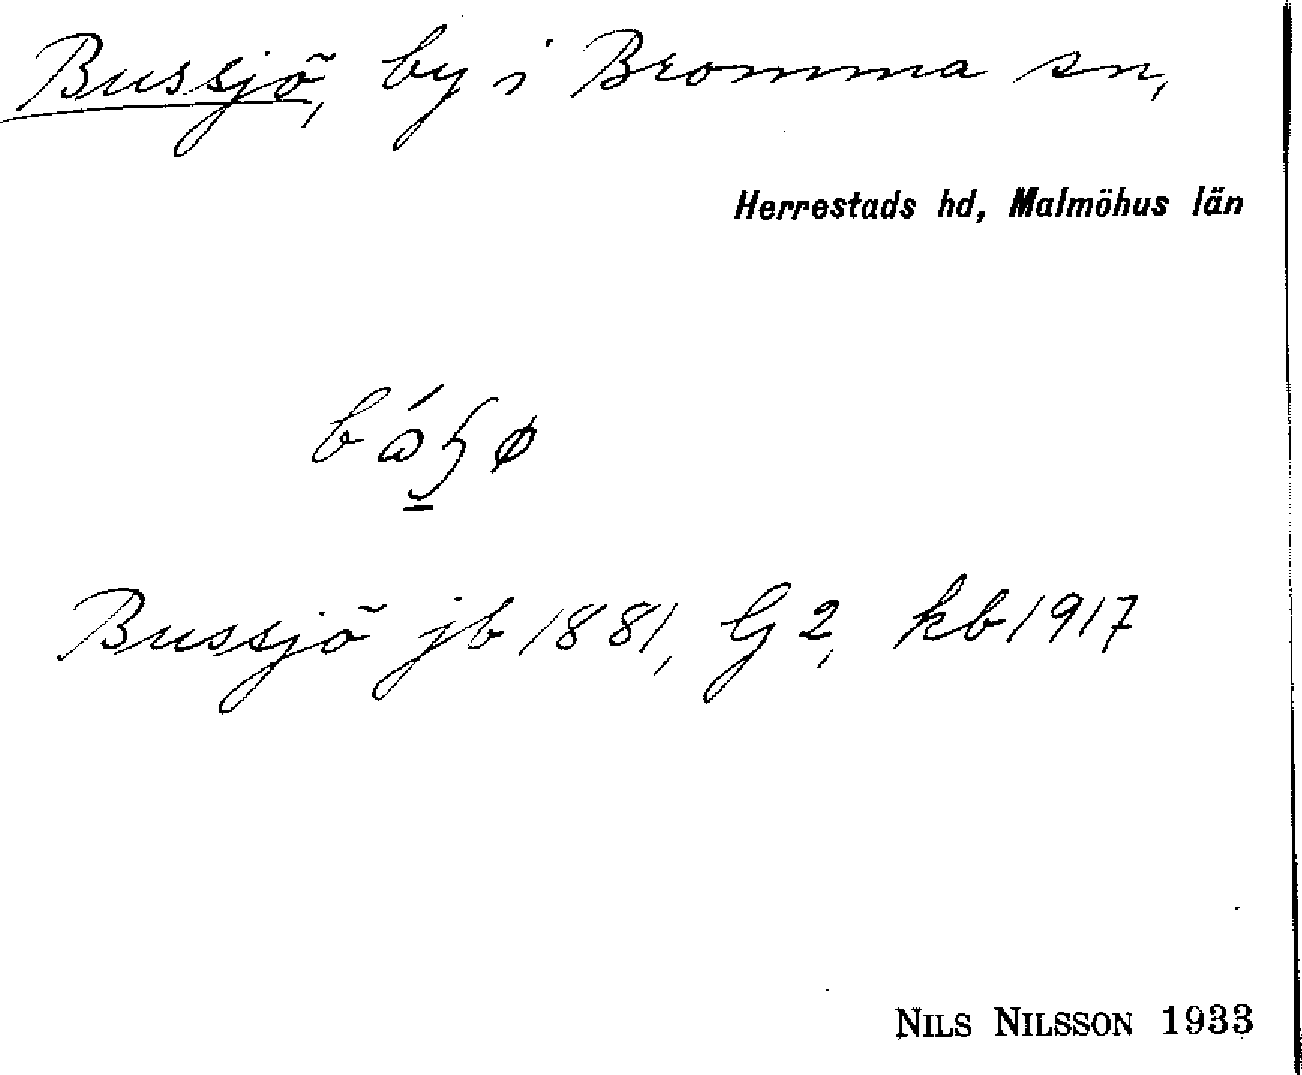 Bussjö, by i Bromma sn,
Herrestads hd, Malmöhus län
Bussjö jb 1881, G 2, kb 1917
NILS NILSSON 1933